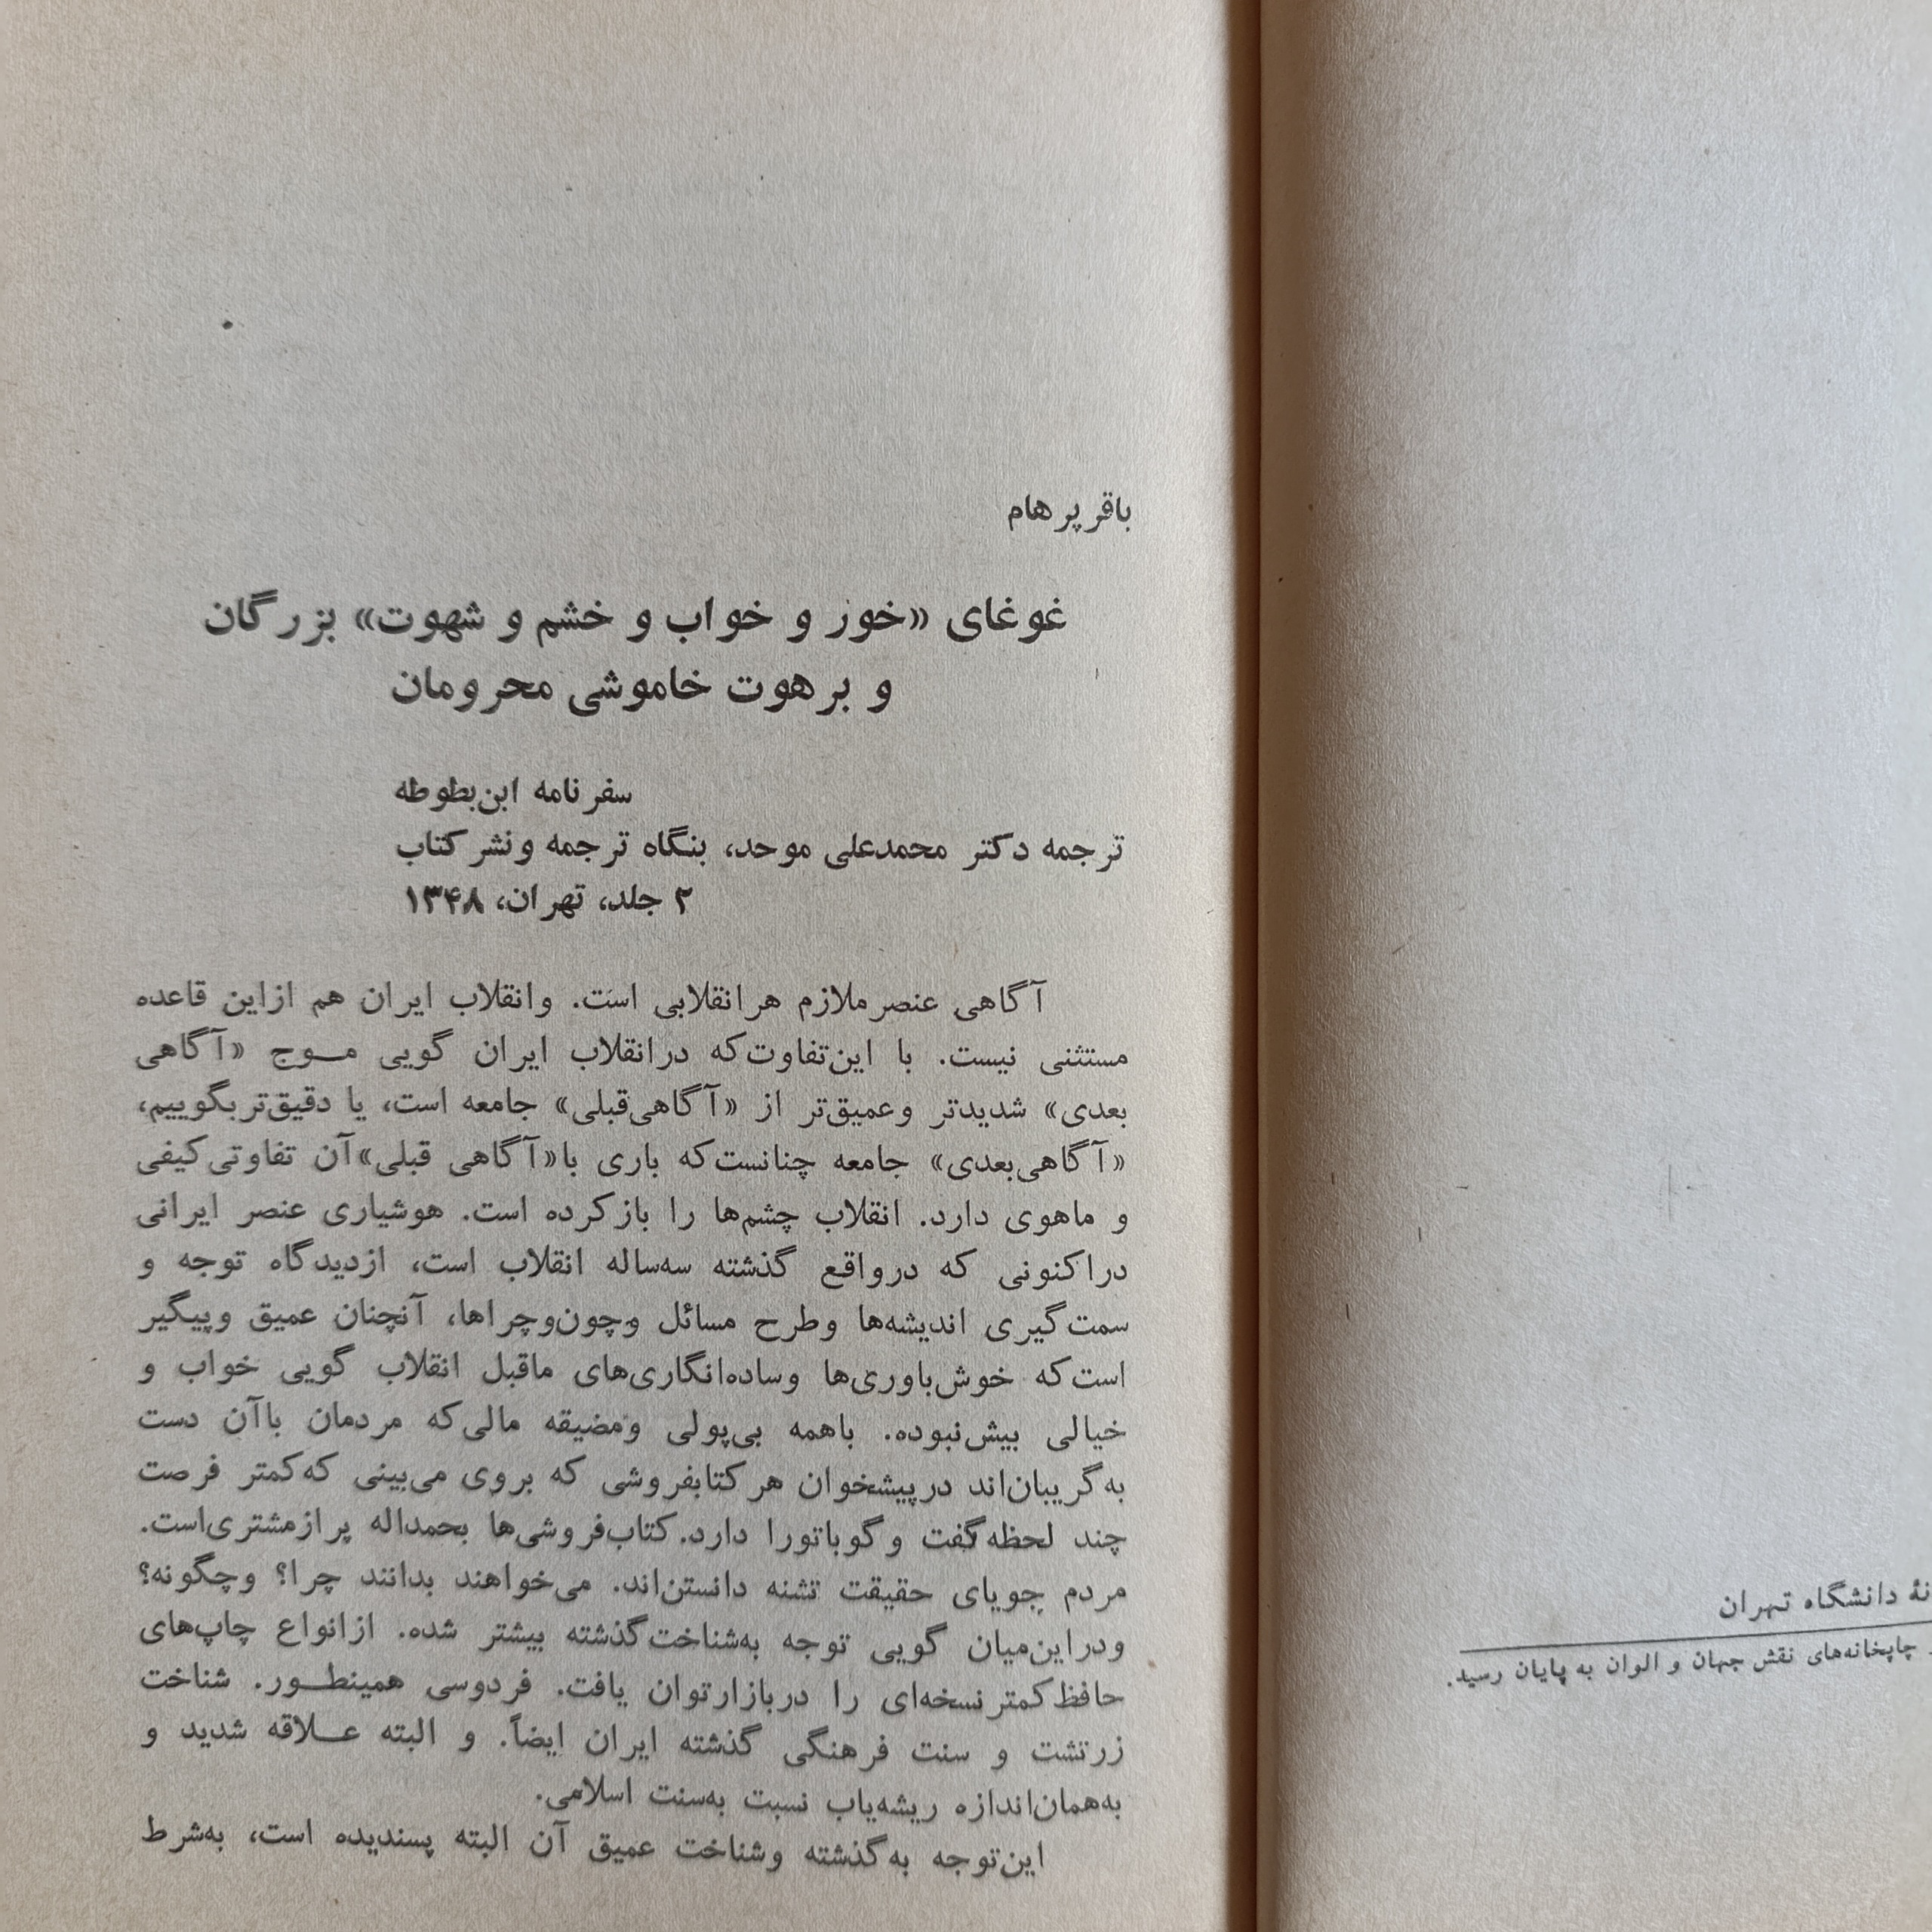 باقر پرهام
غوغای «خور و خواب و خشم و شهوت» بزرگان
و برهوت خاموشی محرومان
سفرنامه ابن‌بطوطه
ترجمه دکتر محمدعلی موحد، بنگاه ترجمه و نشر کتاب
۲ جلد، تهران، ۱۳۴۸
آگاهی عنصر ملازم هر انقلابی است. و انقلاب ایران هم از این قاعده
مستثنی نیست. با این‌تفاوت که در انقلاب ایران گویی موج «آگاهی
بعدی» شدیدتر و عمیق‌تر از «آگاهی‌قبلی» جامعه است، یا دقیق‌تر بگوییم،
«آگاهی‌بعدی» جامعه چنانست که باری با «آگاهی قبلی» آن تفاوتی کیفی
و ماهوی دارد. انقلاب چشم‌ها را باز کرده است. هوشیاری عنصر ایرانی
در اکنونی که در واقع گذشته سه‌ساله انقلاب است، از دیدگاه توجه و
سمت‌گیری اندیشه‌ها و طرح مسائل و چون‌و‌چراها، آنچنان عمیق و پیگیر
است که خوش‌باوری‌ها و ساده‌انگاری‌های ماقبل انقلاب گویی خواب و
خیالی بیش‌نبوده. باهمه بی‌پولی و مضیقه مالی که مردمان باآن دست
به‌گریبان‌اند در پیشخوان هر کتابفروشی که بروی می‌بینی که کمتر فرصت
چند لحظه گفت و گو باتورا دارد. کتاب‌فروشی‌ها بحمداله پر از مشتری‌است.
مردم جویای حقیقت تشنه دانستن‌اند. می‌خواهند بدانند چرا؟ و چگونه؟
و در این‌میان گویی توجه به‌شناخت گذشته بیشتر شده. از انواع چاپ‌های
حافظ کمتر نسخه‌ای را در بازار توان یافت. فردوسی همینطور. شناخت
زرتشت و سنت فرهنگی گذشته ایران ایضاً. و البته علاقه شدید و
به‌همان‌اندازه ریشه‌یاب نسبت به‌سنت اسلامی.
این‌توجه به‌گذشته و شناخت عمیق آن البته پسندیده است، به‌شرط
دانشگاه تهران
چاپخانه‌های نقش جهان و الوان به پایان رسید.